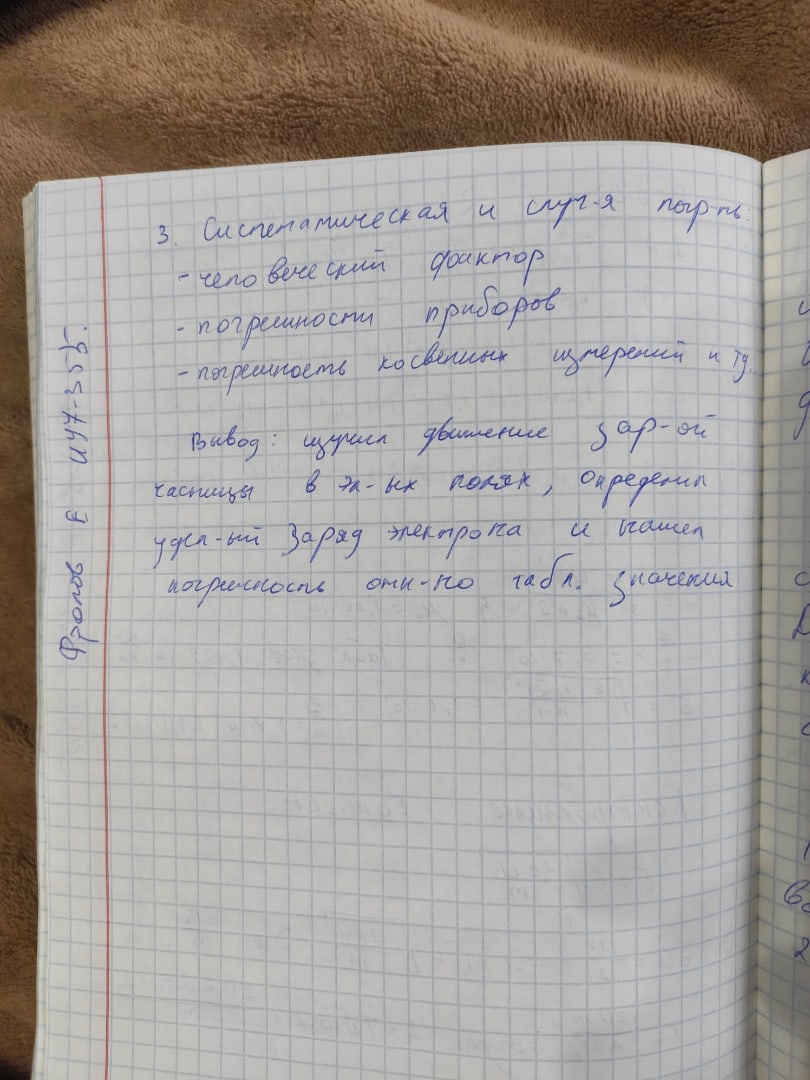 3. Систематическая и случ-я погр-ть:
- человеческий фактор
- погрешности приборов
- погрешность косвенных измерений и тд.
Вывод: изучил движение зар-ой
частицы в эл-ых полях, определил
удел-ый заряд электрона и нашел
погрешность отн-но табл. значения
Фролов Е ИУ7-35Б.